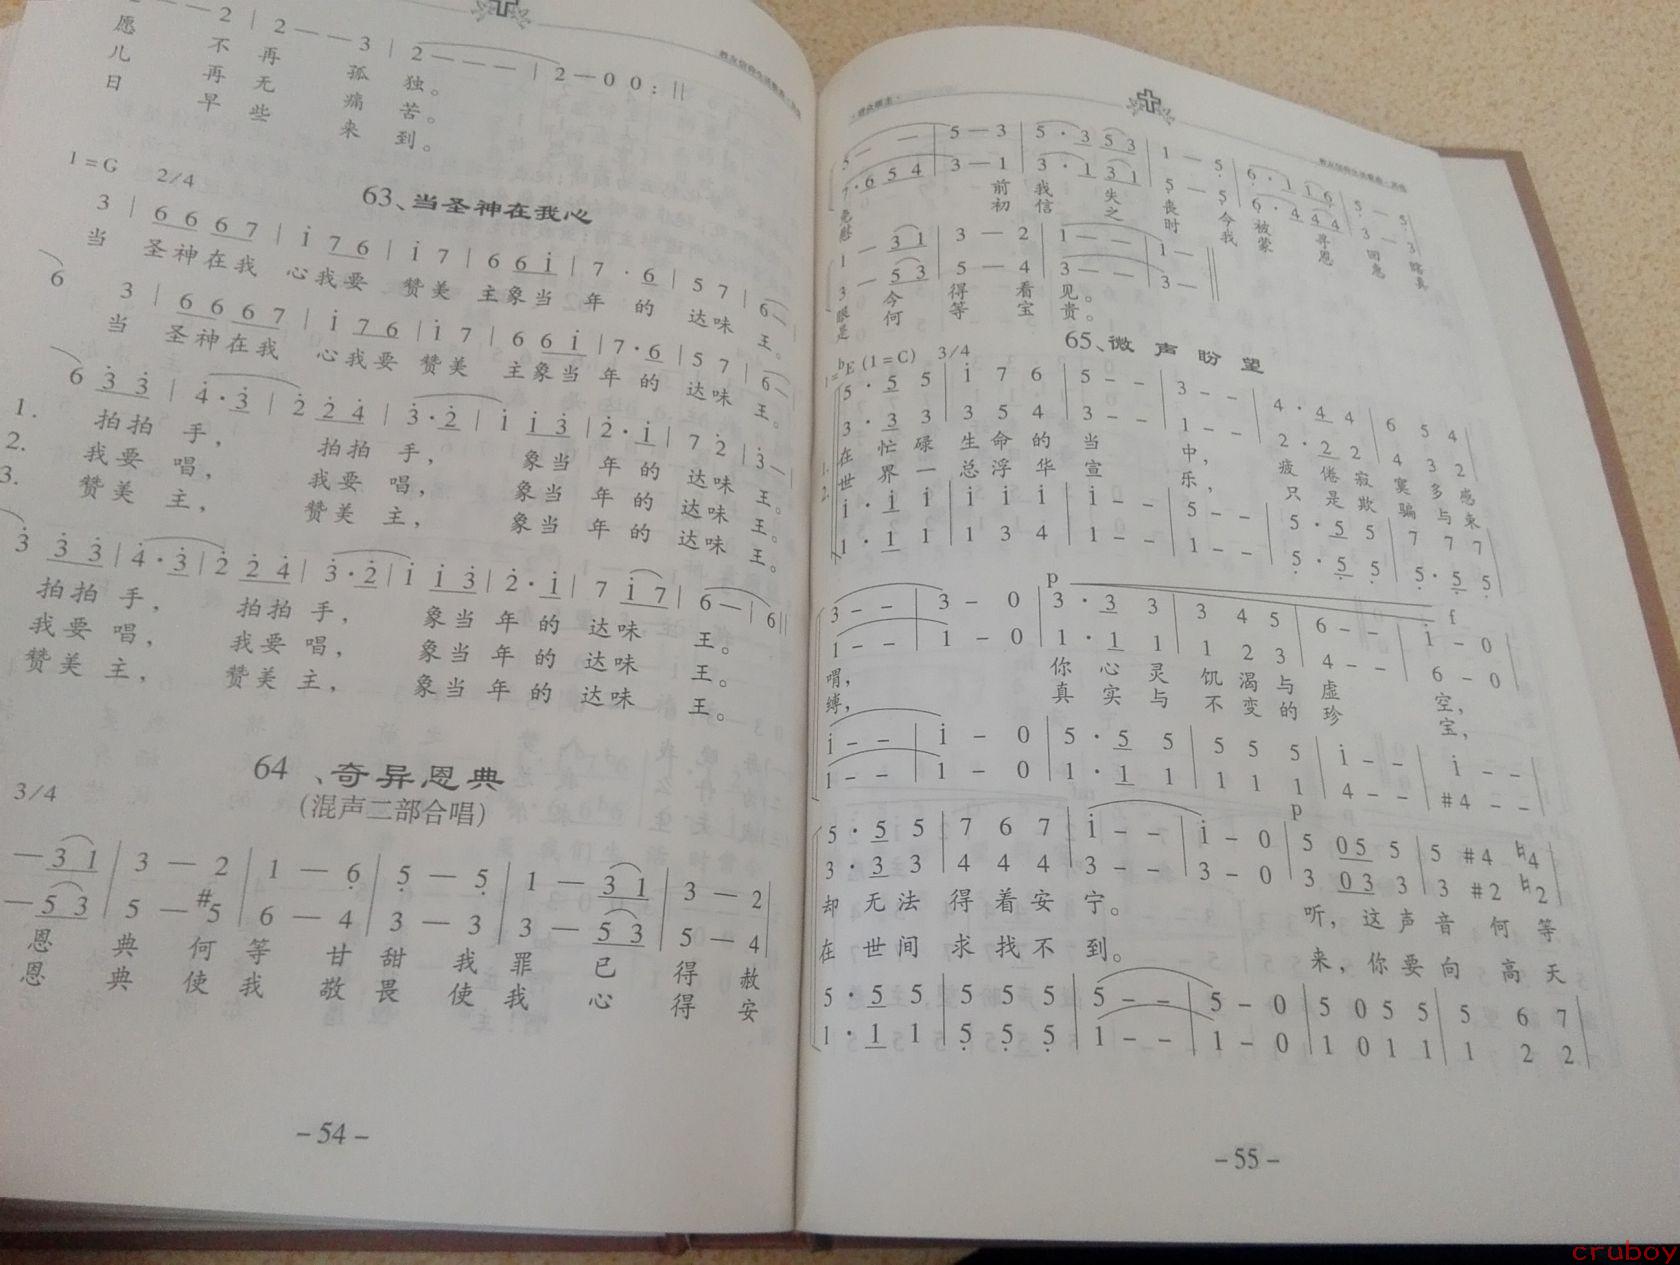 - - 2 | 2 - - 3 | 2 - - - | 2 - 0 0 :||
愿 不 再 孤 独。
儿 再 无 痛 苦。
日 早 些 来 到。
1=G 2/4
63、当圣神在我心
3 | 6 6 6 7 | i 7 6 | i 7 | 6 6 i | 7 · 6 | 5 7 | 6 -
当 圣神在我 心我要 赞美 主象当 年 的 达味 王。
6 3 | 6 6 6 7 | i 7 6 | i 7 | 6 6 i | 7 · 6 | 5 7 | 6 -
当 圣神在我 心我要 赞美 主象当 年 的 达味 王。
6 3 3 | 4 · 3 | 2 2 4 | 3 · 2 | i i 3 | 2 · i | 7 2 | 3 - |
1. 拍拍 手, 拍拍 手, 象当 年 的 达味 王。
2. 我要 唱, 我要 唱, 象当 年 的 达味 王。
3. 赞美 主, 赞美 主, 象当 年 的 达味 王。
3 3 3 | 4 · 3 | 2 2 4 | 3 · 2 | i i 3 | 2 · i | 7 i 7 | 6 - | 6 ||
拍拍 手, 拍拍 手, 象当 年 的 达味 王。
我要 唱, 我要 唱, 象当 年 的 达味 王。
赞美 主, 赞美 主, 象当 年 的 达味 王。
64、奇异恩典
3/4
(混声二部合唱)
- 3 1 | 3 - 2 | 1 - 6 | 5 - 5 | 1 - 3 1 | 3 - 2 |
- 5 3 | 5 - #5 | 6 - 4 | 3 - 3 | 3 - 5 3 | 5 - 4 |
恩 典 何 等 甘 甜 我 罪 已 得 赦
恩 典 使 我 敬 畏 使 我 心 得 安
- 54 -
5 - - | 5 - 3 | 5 · 3 5 3 | 1 - 5 | 6 · 1 1 6 | 5 - 5
7 · 6 5 4 | 3 - 1 | 3 · 1 3 1 | 5 - 5 | 6 · 4 4 4 | 3 - 3
前 我 失 丧 今 被 寻 回 瞎
慰 初 信 之 时 我 蒙 恩 惠 真
1 - 3 1 | 3 - 2 | 1 - - | 1 - ||
3 - 5 3 | 5 - 4 | 3 - - | 3 - ||
眼 今 得 看 见。
是 何 等 宝 贵。
65、微 声 盼 望
1=bE (1=C) 3/4
5 · 5 5 | i 7 6 | 5 - - | 3 - - | 4 · 4 4 | 6 5 4
3 · 3 3 | 3 5 4 | 3 - - | 1 - - | 2 · 2 2 | 4 3 2
1. 在 忙 碌 生 命 的 当 中, 疲 倦 寂 寞 多 感
2. 世 界 一 总 浮 华 宣 乐, 只 是 欺 骗 与 束
i · i i | i i i | i - - | 5 - - | 5 · 5 5 | 7 7 7
1 · 1 1 | 1 3 4 | 1 - - | 1 - - | 5 · 5 5 | 5 · 5 5
p f
3 - - | 3 - 0 | 3 · 3 3 | 3 4 5 | 6 - - | i - 0
1 - - | 1 - 0 | 1 · 1 1 | 1 2 3 | 4 - - | 6 - 0
喟, 你 心 灵 饥 渴 与 虚 空,
缚, 真 实 与 不 变 的 珍 宝,
i - - | i - 0 | 5 · 5 5 | 5 5 5 | i - - | i - -
1 - - | 1 - 0 | 1 · 1 1 | 1 1 1 | 4 - - | #4 - -
p
5 · 5 5 | 7 6 7 | i - - | i - 0 | 5 0 5 5 | 5 #4 ♮4
3 · 3 3 | 4 4 4 | 3 - - | 3 - 0 | 3 0 3 3 | 3 #2 ♮2
却 无 法 得 着 安 宁。 听, 这 声 音 何 等
在 世 间 求 找 不 到。 来, 你 要 向 高 天
5 · 5 5 | 5 5 5 | 5 - - | 5 - 0 | 5 0 5 5 | 5 6 7
1 · 1 1 | 5 5 5 | 1 - - | 1 - 0 | 1 0 1 1 | 1 2 2
- 55 -
cruboy